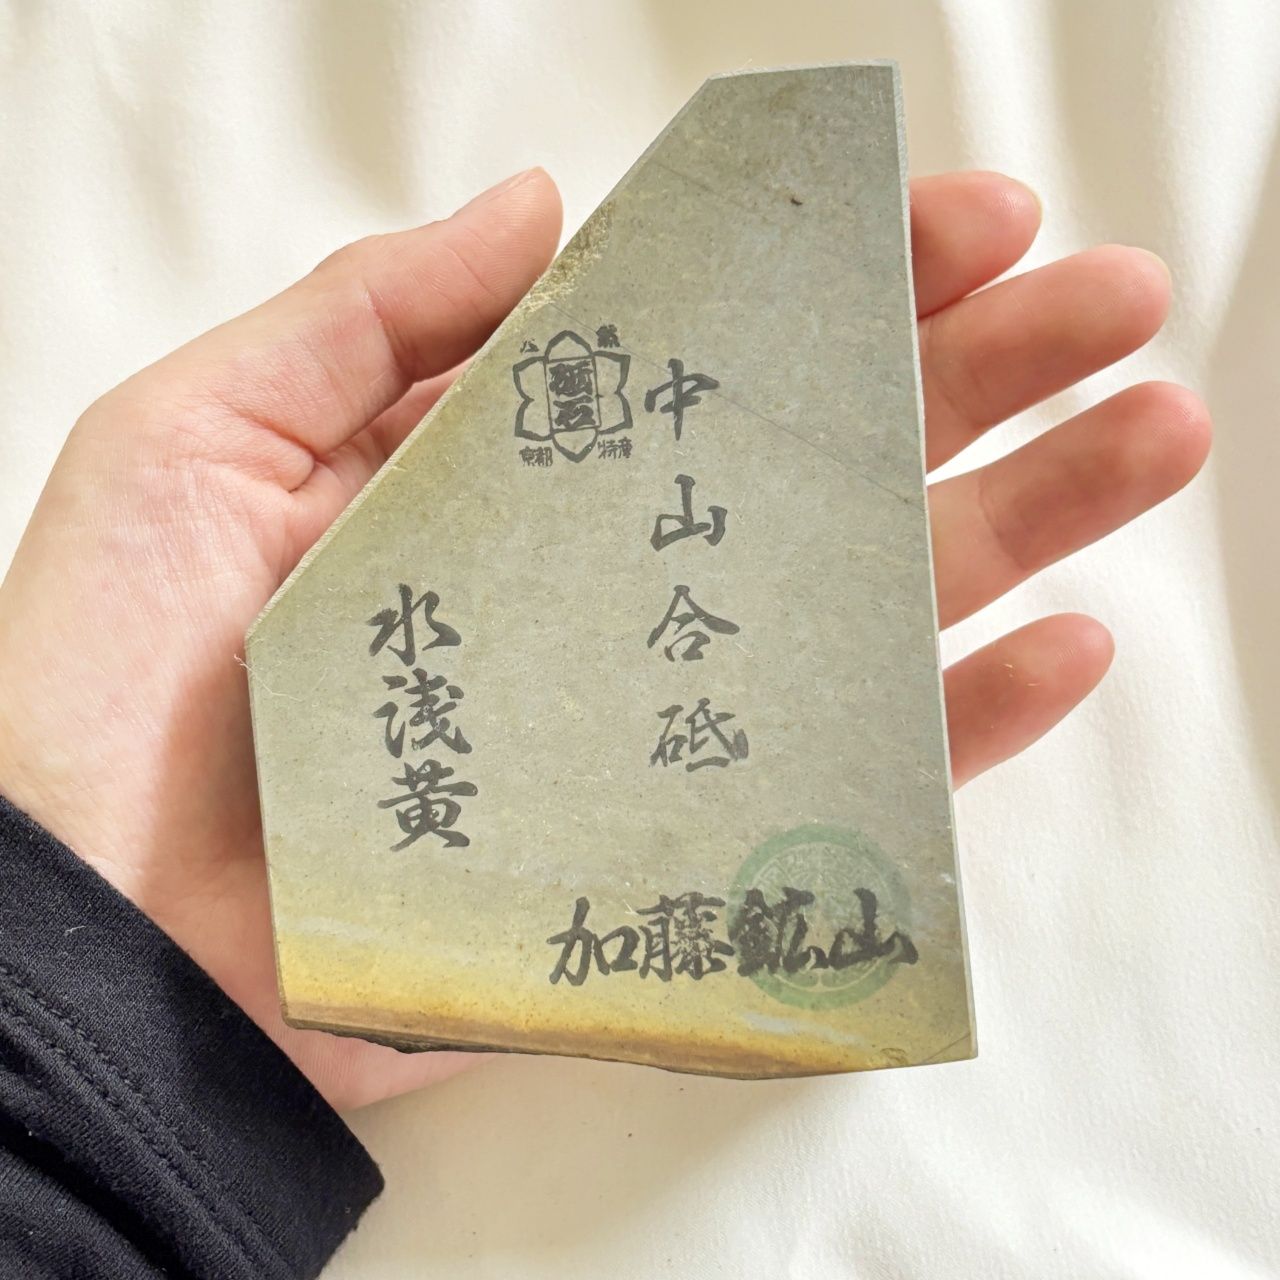 砥石
京都 特産
中山合砥
水浅黄
加藤鉱山